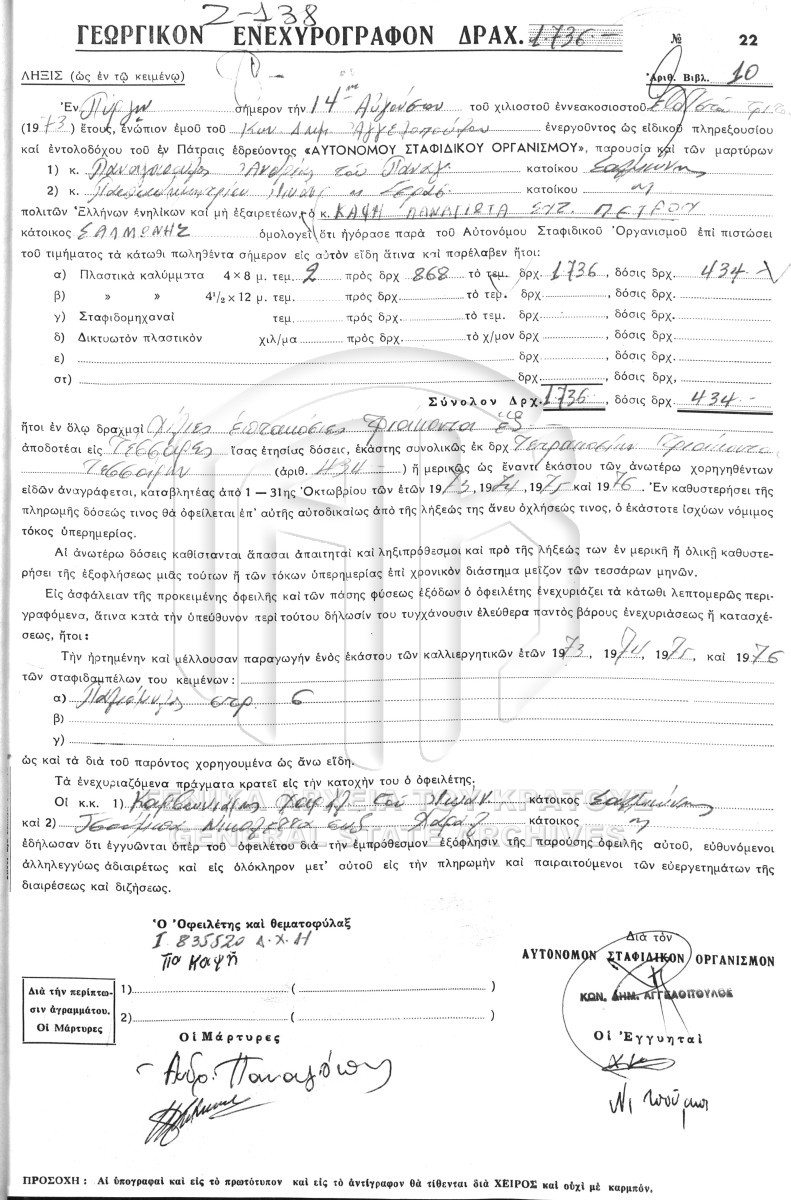 Z-138
ΓΕΩΡΓΙΚΟΝ ΕΝΕΧΥΡΟΓΡΑΦΟΝ ΔΡΑΧ. 1.736.- № 22
ΛΗΞΙΣ (ὡς ἐν τῷ κειμένῳ) Ἀριθ. Βιβλ. 10
Ἐν Πύργῳ σήμερον τὴν 14ην Αὐγούστου τοῦ χιλιοστοῦ ἐννεακοσιοστοῦ
(1973) ἔτους, ἐνώπιον ἐμοῦ τοῦ Κων Δημ Ἀγγελοπούλου ἐνεργοῦντος ὡς εἰδικοῦ πληρεξουσίου
καὶ ἐντολοδόχου τοῦ ἐν Πάτραις ἑδρεύοντος «ΑΥΤΟΝΟΜΟΥ ΣΤΑΦΙΔΙΚΟΥ ΟΡΓΑΝΙΣΜΟΥ», παρουσίᾳ καὶ τῶν μαρτύρων
1) κ. Ἀνδρέας τοῦ Παναγ. κατοίκου Σαλμώνης
2) κ. κατοίκου "
πολιτῶν Ἑλλήνων ἐνηλίκων καὶ μὴ ἐξαιρετέων, ὁ κ. ΚΑΨΗ ΠΑΝΑΓΙΩΤΑ ΣΥΖ. ΠΕΤΡΟΥ
κάτοικος ΣΑΛΜΩΝΗΣ ὁμολογεῖ ὅτι ἠγόρασε παρὰ τοῦ Αὐτονόμου Σταφιδικοῦ Ὀργανισμοῦ ἐπὶ πιστώσει
τοῦ τιμήματος τὰ κάτωθι πωληθέντα σήμερον εἰς αὐτὸν εἴδη ἅτινα καὶ παρέλαβεν ἤτοι:
α) Πλαστικὰ καλύμματα 4×8 μ. τεμ. 2 πρὸς δρχ 868 τὸ τεμ. δρχ. 1736, δόσις δρχ. 434.-
β) » » 4½×12 μ. τεμ. πρὸς δρχ. τὸ τεμ. δρχ. , δόσις δρχ.
γ) Σταφιδομηχαναὶ τεμ. πρὸς δρχ. τὸ τεμ. δρχ. , δόσις δρχ.
δ) Δικτυωτὸν πλαστικὸν χιλ/μα πρὸς δρχ. τὸ χ/μον δρχ. , δόσις δρχ.
ε) δρχ , δόσις δρχ.
στ) δρχ. , δόσις δρχ,
Σύνολον Δρχ. 1736, δόσις δρχ. 434-
ἤτοι ἐν ὅλῳ δραχμαὶ Χίλιες ἑπτακόσιες τριάκοντα ἕξ -
ἀποδοτέαι εἰς ΤΕΣΣΑΡΕΣ ἴσας ἐτησίας δόσεις, ἑκάστης συνολικῶς ἐκ δρχ Τετρακοσίων τριάκοντα
ΤΕΣΣΑΡΩΝ (ἀριθ. 434 -) ἢ μερικῶς ὡς ἔναντι ἑκάστου τῶν ἀνωτέρω χορηγηθέντων
εἰδῶν ἀναγράφεται, καταβλητέας ἀπὸ 1 — 31ης Ὀκτωβρίου τῶν ἐτῶν 1973, 1974, 1975 καὶ 1976. Ἐν καθυστερήσει τῆς
πληρωμῆς δόσεώς τινος θὰ ὀφείλεται ἐπ' αὐτῆς αὐτοδικαίως ἀπὸ τῆς λήξεώς της ἄνευ ὀχλήσεώς τινος, ὁ ἑκάστοτε ἰσχύων νόμιμος
τόκος ὑπερημερίας.
Αἱ ἀνωτέρω δόσεις καθίστανται ἅπασαι ἀπαιτηταὶ καὶ ληξιπρόθεσμοι καὶ πρὸ τῆς λήξεώς των ἐν μερικῇ ἢ ὁλικῇ καθυστε-
ρήσει τῆς ἐξοφλήσεως μιᾶς τούτων ἢ τῶν τόκων ὑπερημερίας ἐπὶ χρονικὸν διάστημα μεῖζον τῶν τεσσάρων μηνῶν.
Εἰς ἀσφάλειαν τῆς προκειμένης ὀφειλῆς καὶ τῶν πάσης φύσεως ἐξόδων ὁ ὀφειλέτης ἐνεχυριάζει τὰ κάτωθι λεπτομερῶς περι-
γραφόμενα, ἅτινα κατὰ τὴν ὑπεύθυνον περὶ τούτου δήλωσίν του τυγχάνουσιν ἐλεύθερα παντὸς βάρους ἐνεχυριάσεως ἢ κατασχέ-
σεως, ἤτοι:
Τὴν ἠρτημένην καὶ μέλλουσαν παραγωγὴν ἑνὸς ἑκάστου τῶν καλλιεργητικῶν ἐτῶν 1973, 1974, 1975, καὶ 1976
τῶν σταφιδαμπέλων του κειμένων:
α) στρ. 6
β)
γ)
ὡς καὶ τὰ διὰ τοῦ παρόντος χορηγουμένα ὡς ἄνω εἴδη.
Τὰ ἐνεχυριαζόμενα πράγματα κρατεῖ εἰς τὴν κατοχήν του ὁ ὀφειλέτης,
ΓΕΝΙΚΑ ΑΡΧΕΙΑ ΤΟΥ ΚΡΑΤΟΥΣ
Οἱ κ.κ. 1) τοῦ κάτοικος Σαλμώνης
καὶ 2) κάτοικος "
GENERAL STATE ARCHIVES
ἐδήλωσαν ὅτι ἐγγυῶνται ὑπὲρ τοῦ ὀφειλέτου διὰ τὴν ἐμπρόθεσμον ἐξόφλησιν τῆς παρούσης ὀφειλῆς αὐτοῦ, εὐθυνόμενοι
ἀλληλεγγύως ἀδιαιρέτως καὶ εἰς ὁλόκληρον μετ' αὐτοῦ εἰς τὴν πληρωμὴν καὶ παραιτούμενοι τῶν εὐεργετημάτων τῆς
διαιρέσεως καὶ διζήσεως.
Ὁ Ὀφειλέτης καὶ θεματοφύλαξ
Ι 835520 Δ.Χ.Η
Πα Καψῆ
Διὰ τὸν
ΑΥΤΟΝΟΜΟΝ ΣΤΑΦΙΔΙΚΟΝ ΟΡΓΑΝΙΣΜΟΝ
ΚΩΝ. ΔΗΜ. ΑΓΓΕΛΟΠΟΥΛΟΣ
Διὰ τὴν περίπτω-
σιν ἀγραμμάτου.
Οἱ Μάρτυρες
1) ( )
2) ( )
Οἱ Μάρτυρες
Οἱ Ἐγγυηταὶ
ΠΡΟΣΟΧΗ: Αἱ ὑπογραφαὶ καὶ εἰς τὸ πρωτότυπον καὶ εἰς τὸ ἀντίγραφον θὰ τίθενται διὰ ΧΕΙΡΟΣ καὶ οὐχὶ μὲ καρμπόν.